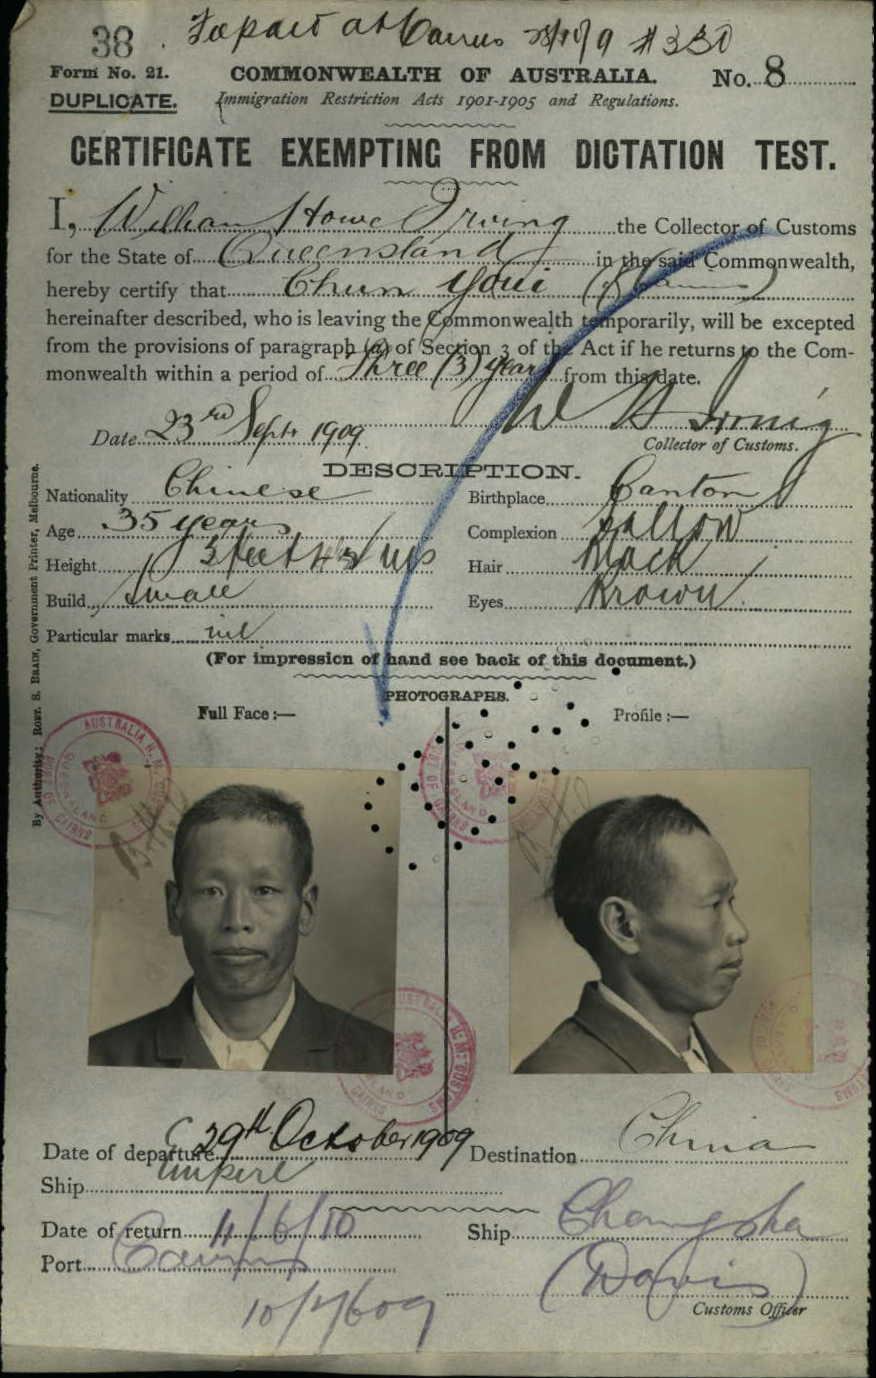 38 . at Cairns 9 #330
Form No. 21. COMMONWEALTH OF AUSTRALIA. No. 8
DUPLICATE. Immigration Restriction Acts 1901-1905 and Regulations.
CERTIFICATE EXEMPTING FROM DICTATION TEST.
I, William Howe Irving the Collector of Customs
for the State of Queensland in the said Commonwealth,
hereby certify that Chun Youi (Cairns)
hereinafter described, who is leaving the Commonwealth temporarily, will be excepted
from the provisions of paragraph (a) of Section 3 of the Act if he returns to the Com-
monwealth within a period of Three (3) years from this date.
W H Irving
Date 23rd Septr 1909. Collector of Customs.
DESCRIPTION.
Nationality Chinese Birthplace Canton
Age 35 years Complexion Sallow
Height 5 feet ins Hair Black
Build Small Eyes Brown
Particular marks nil
(For impression of hand see back of this document.)
PHOTOGRAPHS.
Full Face :— Profile :—
By Authority: ROBT. S. BRAIN, Government Printer, Melbourne.
Date of departure 29th October 1909 Destination China
Ship Empire
Date of return 11/6/10 Ship Changsha
Port Cairns (Davis)
Customs Officer